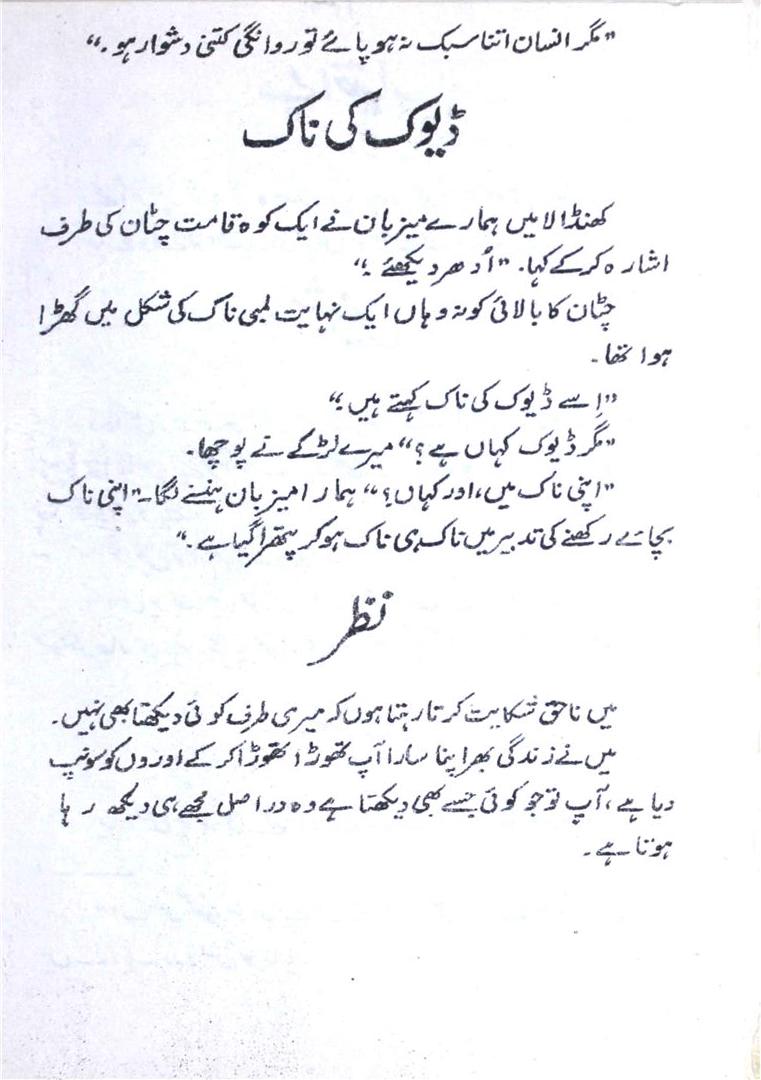 ”مگر انسان اتنا سبک نہ ہو پائے تو روانگی کتنی دشوار ہو۔“
ڈیوک کی ناک
کھنڈالا میں ہمارے میزبان نے ایک کوہ قامت چٹان کی طرف
اشارہ کر کے کہا۔ ”اُدھر دیکھئے ۔“
چٹان کا بالائی کونہ وہاں ایک نہایت لمبی ناک کی شکل میں گھڑا
ہوا تھا۔
”اِسے ڈیوک کی ناک کہتے ہیں ۔“
”مگر ڈیوک کہاں ہے؟“ میرے لڑکے نے پوچھا۔
”اپنی ناک میں، اور کہاں؟“ ہمارا میزبان ہنسنے لگا۔ ”اپنی ناک
بچائے رکھنے کی تدبیر میں ناک ہی ناک ہو کر پتھرا گیا ہے ۔“
نظر
میں ناحق شکایت کرتا رہتا ہوں کہ میری طرف کوئی دیکھتا بھی نہیں۔
میں نے زندگی بھر اپنا سارا آپ تھوڑا تھوڑا کر کے اوروں کو سونپ
دیا ہے، آپ تو جو کوئی جسے بھی دیکھتا ہے وہ دراصل مجھے ہی دیکھ رہا
ہوتا ہے۔